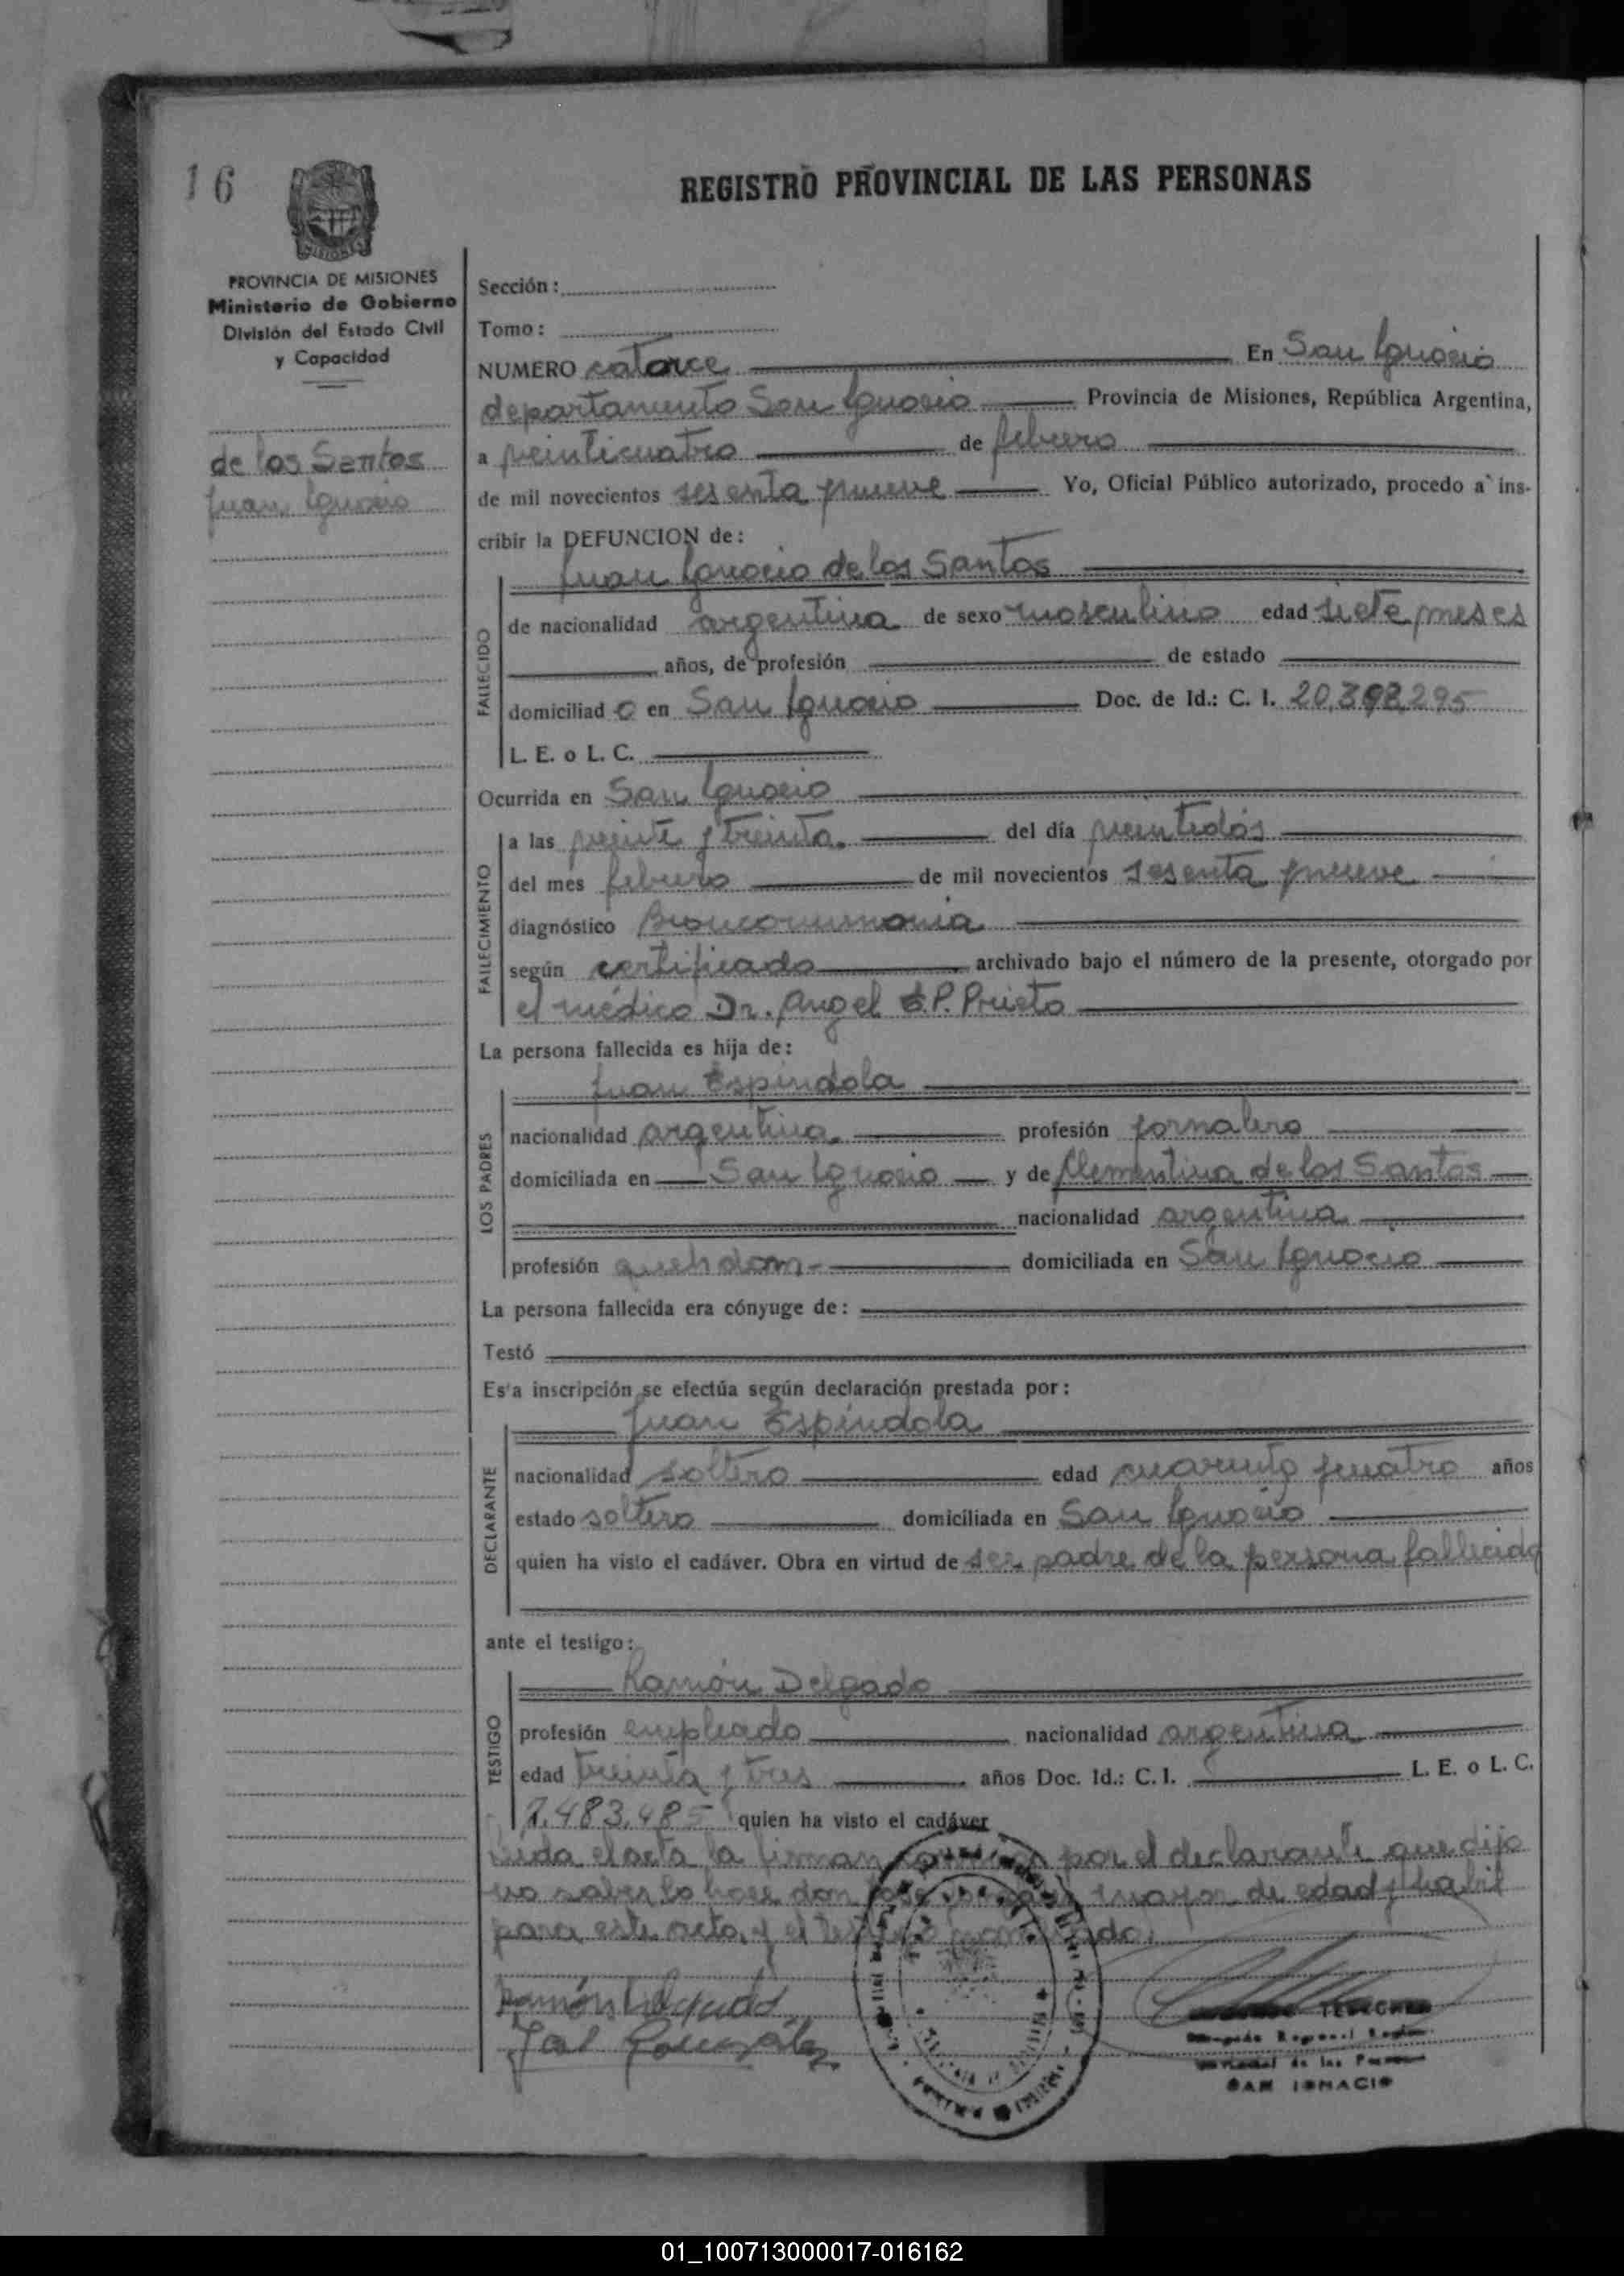 16
REGISTRO PROVINCIAL DE LAS PERSONAS
MISIONES
PROVINCIA DE MISIONES
Ministerio de Gobierno
División del Estado Civil
y Capacidad
de los Santos
Juan Ignacio
Sección:
Tomo:
NUMERO catorce En San Ignacio
departamento San Ignacio Provincia de Misiones, República Argentina,
a veinticuatro de febrero
de mil novecientos sesenta y nueve Yo, Oficial Público autorizado, procedo a ins-
cribir la DEFUNCION de:
Juan Ignacio de los Santos
FALLECIDO
de nacionalidad argentina de sexo masculino edad siete meses
años, de profesión de estado
domiciliad o en San Ignacio Doc. de Id.: C. I. 20.392.295
L. E. o L. C.
Ocurrida en San Ignacio
FALLECIMIENTO
a las veinte y treinta. del día veintidós
del mes febrero de mil novecientos sesenta y nueve
diagnóstico Bronconeumonia
según certificado archivado bajo el número de la presente, otorgado por
el médico Dr. Angel E.P. Prieto
La persona fallecida es hija de:
Juan Espindola
LOS PADRES
nacionalidad argentina. profesión jornalero
domiciliada en San Ignacio y de Clementina de los Santos
nacionalidad argentina
profesión queh dom- domiciliada en San Ignacio
La persona fallecida era cónyuge de:
Testó
Esta inscripción se efectúa según declaración prestada por:
Juan Espíndola
DECLARANTE
nacionalidad soltero edad cuarenta y cuatro años
estado soltero domiciliada en San Ignacio
quien ha visto el cadáver. Obra en virtud de ser padre de la persona fallecida
ante el testigo:
Ramón Delgado
TESTIGO
profesión empleado nacionalidad argentina
edad treinta y tres años Doc. Id.: C. I. L. E. o L. C.
7.483.485 quien ha visto el cadáver
Leida el acta la firman conmigo por el declarante que dijo
no saber lo hace don José mayor de edad y habil
para este acto, y el testigo nombrado.
Ramón Delgado
José González
SAN IGNACIO
01_100713000017-016162